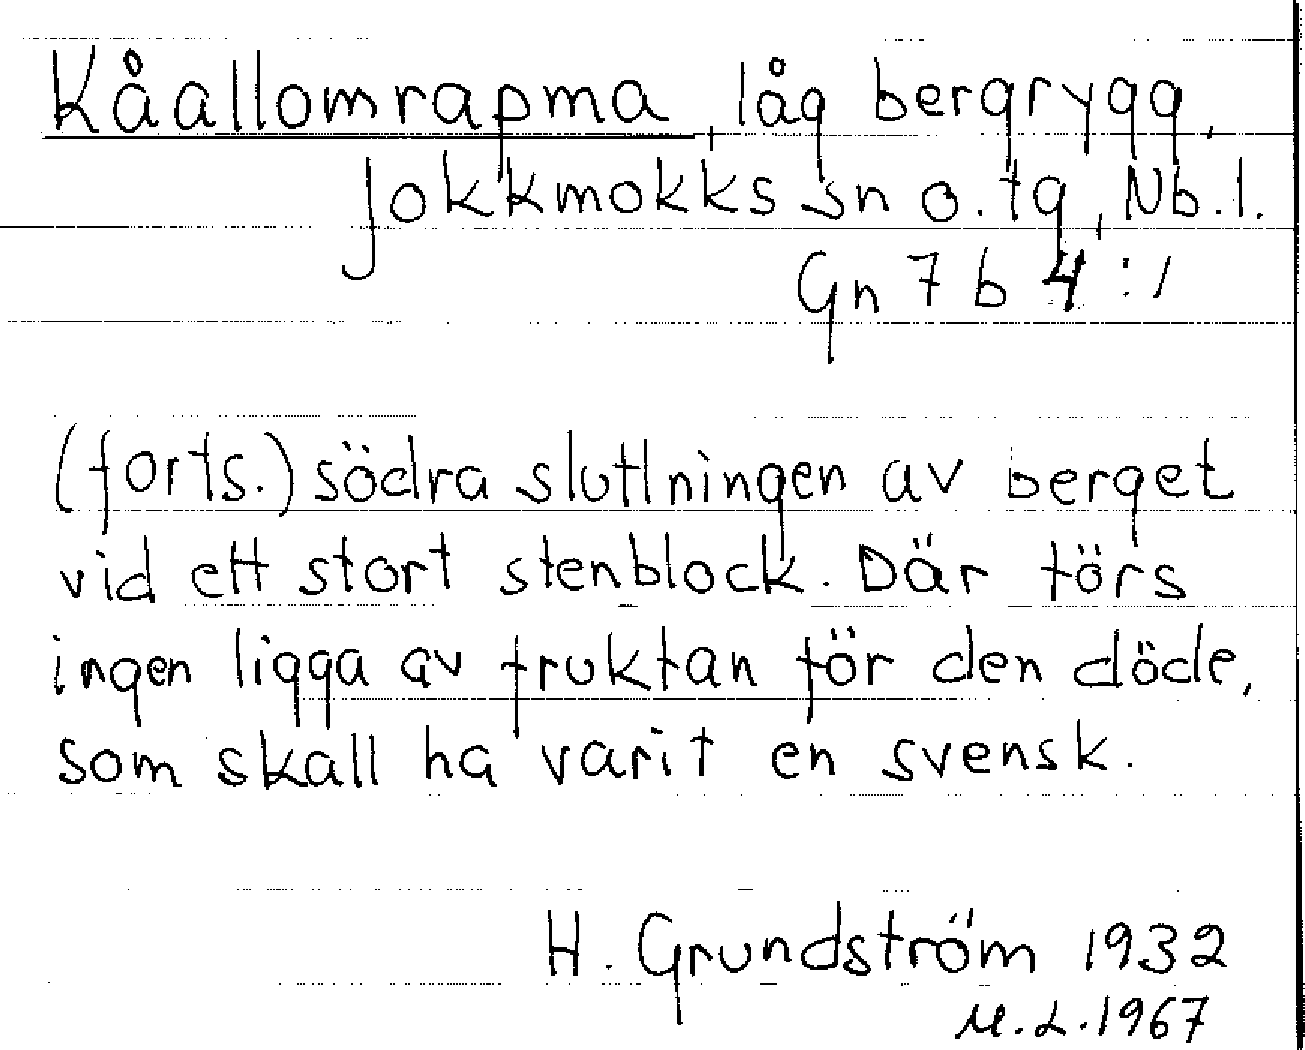 Kåallomrapma, låg bergrygg,
Jokkmokks sn o. tg, Nb.l.
Gn 7 b 4:1
(forts.) södra sluttningen av berget
vid ett stort stenblock. Där törs
ingen ligga av fruktan för den döde,
som skall ha varit en svensk.
H. Grundström 1932
M.L.1967